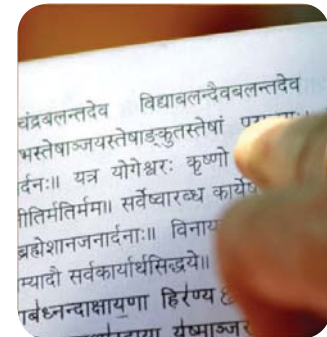 चंद्रबलन्तदेव विद्याबलन्दैवबलन्तदेव
भस्तेषाञ्जयस्तेषाङ्कुतस्तेषां
र्दनः॥ यत्र योगेश्वरः कृष्णो
नीतिर्मतिर्मम॥ सर्वेष्वारब्ध कार्येष
ब्रह्मेशानजनार्दनाः॥ विनाय
म्यादौ सर्वकार्यार्थसिद्धये॥
हिरण्य